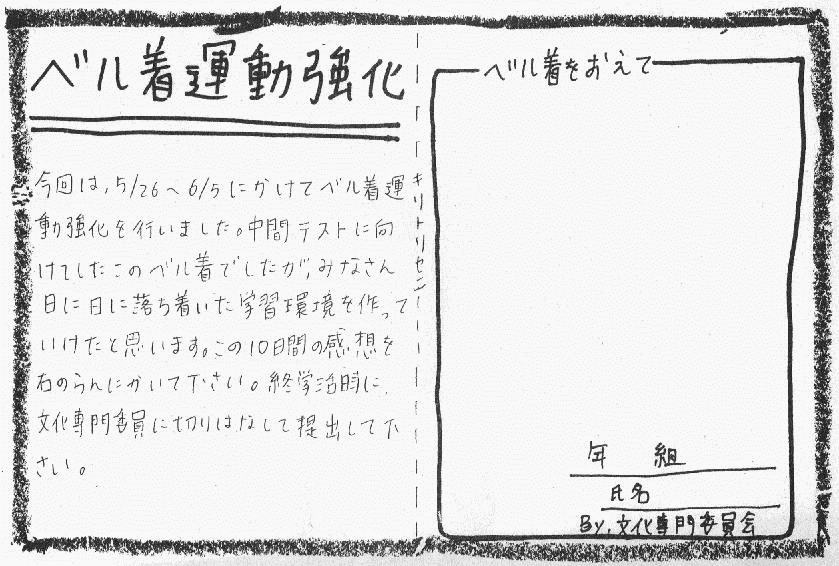 ベル着運動強化
今回は、5/26〜6/5にかけてベル着運
動強化を行いました。中間テストに向
けてしたこのベル着でしたが、みなさん
日に日に落ち着いた学習環境を作って
いけたと思います。この10日間の感想を
右のらんにかいて下さい。終学活時に、
文化専門委員に切りはなして提出して下
さい。
キリトリセン
ベル着をおえて
年 組
氏名
By.文化専門委員会